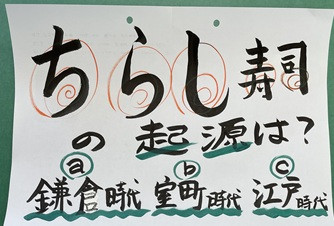 ちらし寿司
の起源は?
ⓐ ⓑ ⓒ
鎌倉時代 室町時代 江戸時代